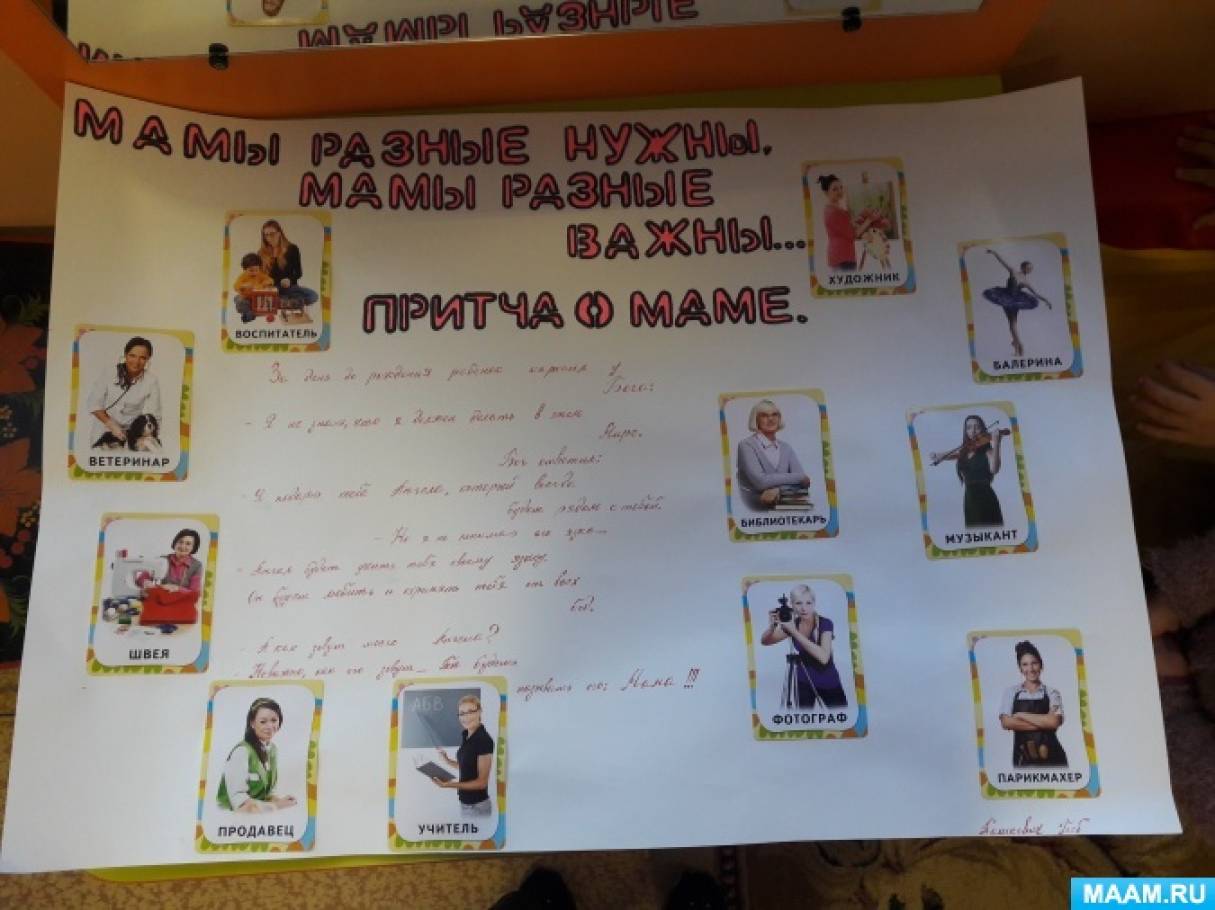 МАМЫ РАЗНЫЕ
МАМЫ РАЗНЫЕ НУЖНЫ,
МАМЫ РАЗНЫЕ
ВАЖНЫ...
ПРИТЧА О МАМЕ.
ХУДОЖНИК
БАЛЕРИНА
ВОСПИТАТЕЛЬ
ВЕТЕРИНАР
За день до рождения ребенок спросил у
Бога:
- Я не знаю, что я должен делать в этом
Мире.
Бог ответил:
- Я подарю тебе Ангела, который всегда
будет рядом с тобой.
- Но я не понимаю его язык...
- Ангел будет учить тебя своему языку.
Он будет любить и охранять тебя от всех
бед.
- А как зовут моего Ангела?
- Неважно, как его зовут... Ты будешь
называть его: Мама!!!
БИБЛИОТЕКАРЬ
МУЗЫКАНТ
ШВЕЯ
ФОТОГРАФ
ПАРИКМАХЕР
ПРОДАВЕЦ
АБВ
УЧИТЕЛЬ
MAAM.RU